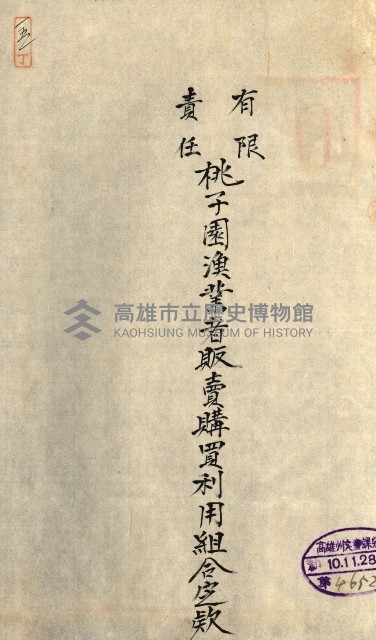 有限
責任
桃子園漁業者販賣購買利用組合定款
高雄市立歷史博物館
KAOHSIUNG MUSEUM OF HISTORY
丁
高雄州文書課
10.11.28
第4652